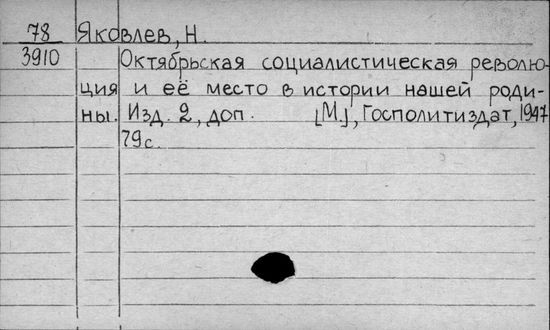 78 Яковлев, Н.
3910 Октябрьская социалистическая револю-
ция и её место в истории нашей роди-
ны. Изд. 2, доп. [М.], Госполитиздат, 1947
79с.